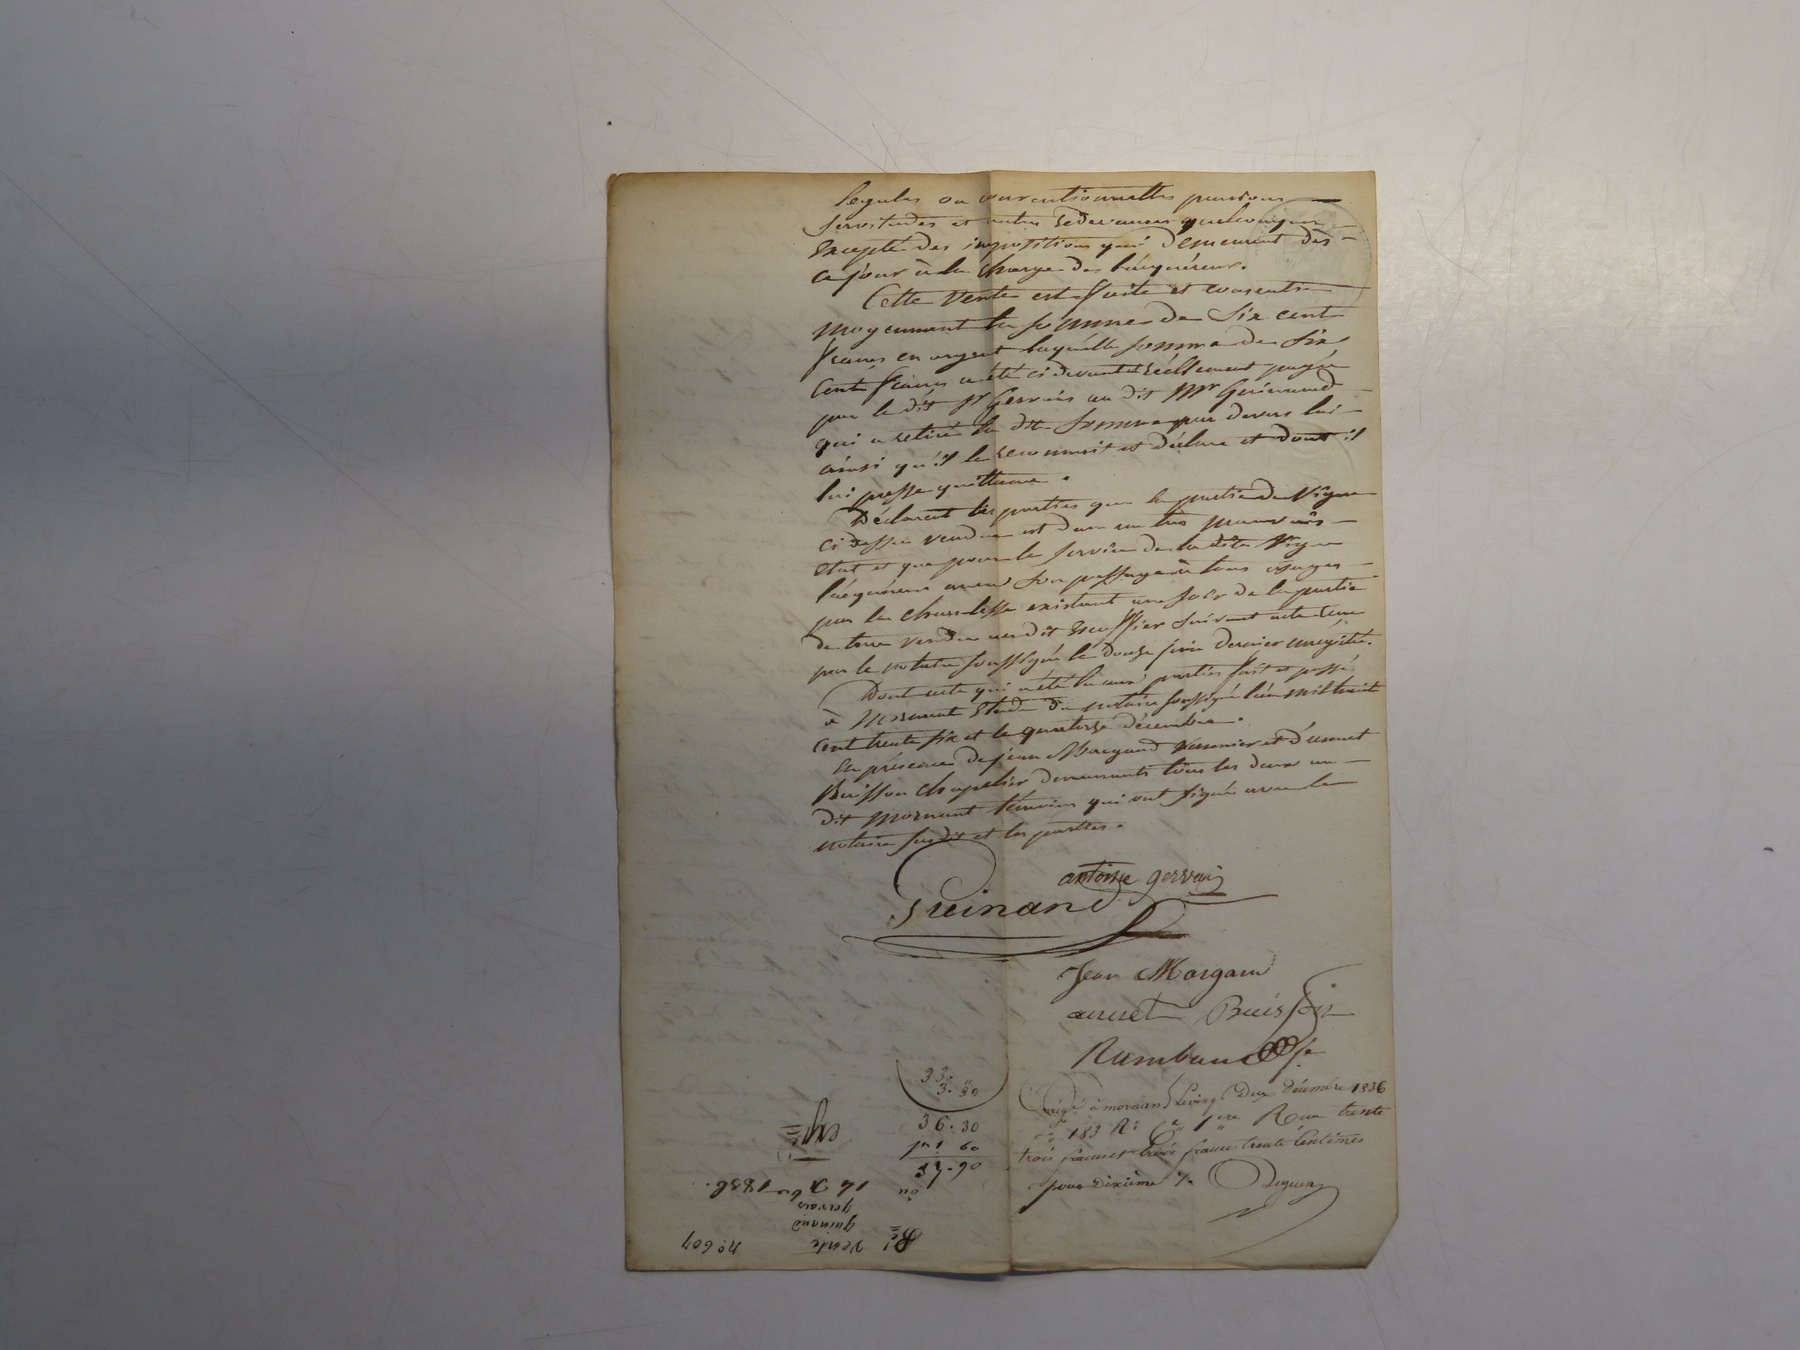 légales ou conventionnelles pensions
servitudes et autres redevances quelconques
Excepté des impositions qui demeurent dès
ce jour à la charge de l'acquéreur.
Cette Vente est faite et consentie
moyennant la somme de Six cent
francs en argent laquelle somme de Six
Cent francs a été ci devant réellement payée
par le dit Sr Gervais au dit Mr Guinand
qui a retiré la dte Somme par devers lui
ainsi qu'il le reconnoit et déclare et dont il
lui passe quittance.
Déclarent les parties que la partie de Vigne
ci dessus vendue est dans un très mauvais
Etat et que pour le service de la dite Vigne
l'acquéreur aura son passage à tous usages
par la existant au soir de la partie
de terre vendue au dit Escoffier suivant acte reçu
par le notaire soussigné le douze juin dernier enregistré.
Dont acte qui a été lu aux parties fait et passé
à Mornant Etude du notaire soussigné l'an mil huit
cent trente six et le quatorze décembre.
En présence de jean Margand et d'annet
Buisson Chapelier demeurants tous les deux au
dit Mornant témoins qui ont signé avec le
notaire susdit et les parties.
antoine gervais
Guinand
Jean Margand
annet Buisson
Rambaud
33.
3. 30
36. 30
1 60
37. 90
Enrgé à mornant le vingt Deux décembre 1836
183 Rçu trente
trois francs et trois francs trente Centimes
pour dixième
exp
14 Xbre 1836.
gervais
guinand
Vente
N°. 607